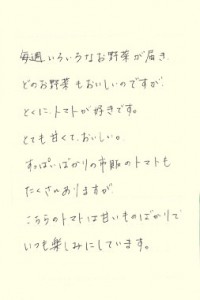 毎週、いろいろなお野菜が届き、
どのお野菜もおいしいのですが、
とくに、トマトが好きです。
とても甘くて、おいしい。
すっぱいばかりの市販のトマトも
たくさんありますが、
こちらのトマトは甘いものばかりで
いつも楽しみにしています。